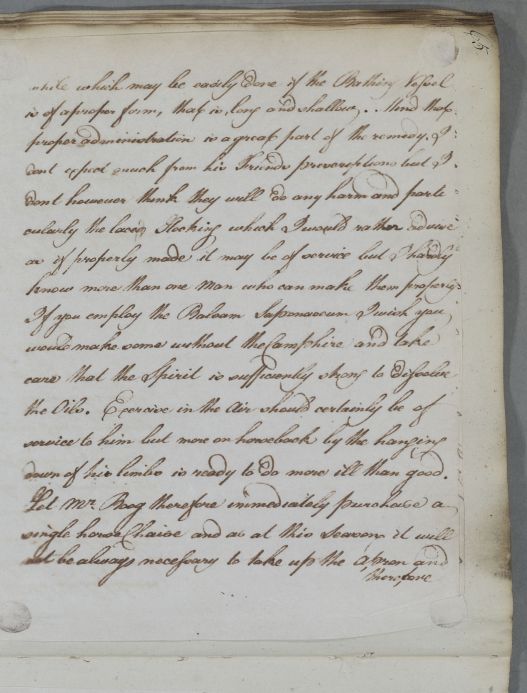 65
while which may be easily done if the Bathing Vessel
is of a proper form, that is, long and shallow, . Mind that
proper administration is a great part of the remedy. I
dont expect much from his Friends prescription but I
dont however think they will do any harm and parti
cularly the laced Stocking which I would rather advise
as if properly made it may be of service but I hardly
know more than one man who can make them properly
If you employ the Balsam Saponaceum I wish you
would make some without the Camphire and take
care that the Spirit is sufficiently strong to dissolve
the Oils. Exercise in the Air should certainly be of
service to him but more on horseback by the hanging
down of his limbs is ready to do more ill than good.
Let Mr. Boog therefore immediately purchase a
single horse Chaise and as at this Season it will
not be always necessary to take up the Apron and
therefore